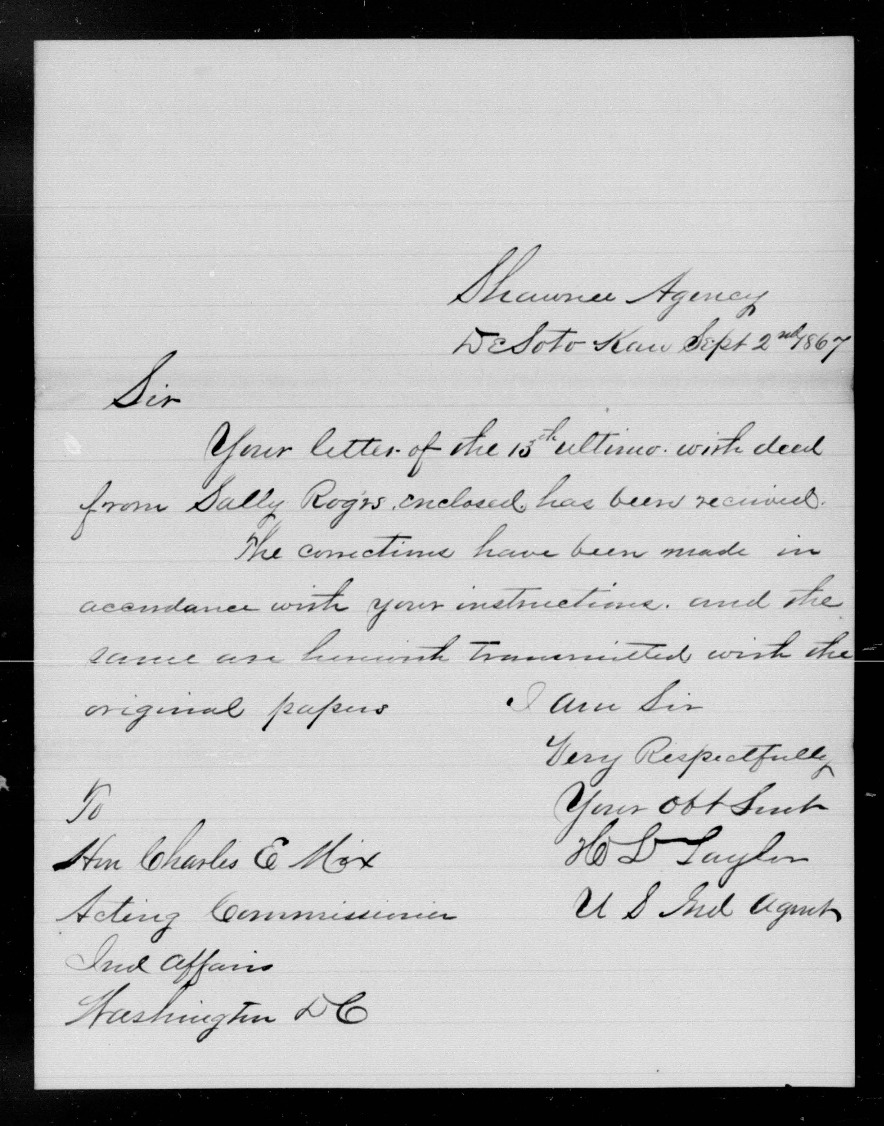 Shawnee Agency
De Soto Kan Sept 2nd 1867
Sir
Your letter of the 13th ultimo. with deed
from Sally Rogrs. enclosed, has been received.
The corrections have been made in
accordance with your instructions. and the
same are herewith transmitted with the
original papers
I am Sir
Very Respectfully
Your Obt Servt
H L Taylor
U S Ind Agent
To
Hon Charles E Mix
Acting Commissioner
Ind Affairs
Washington D C